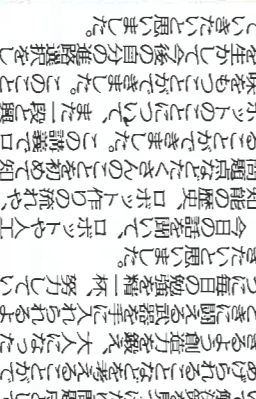 あげられることなどを考えることがで
きるよう創造力を鍛え、大人になった
ときに闘える武器を手に入れられるよ
うに毎日の勉強を精一杯、努力してい
きたいと思いました。
今日の話を聞いて、ロボットや人工
知能の歴史、ロボット作りの流れや、
問題点などたくさんのことを初めて知
ることができました。この講義でロ
ボットのことについて、また一段と興
味をもつことができました。このこと
を生かして今後の自分の進路選択をし
ていきたいと思いました。